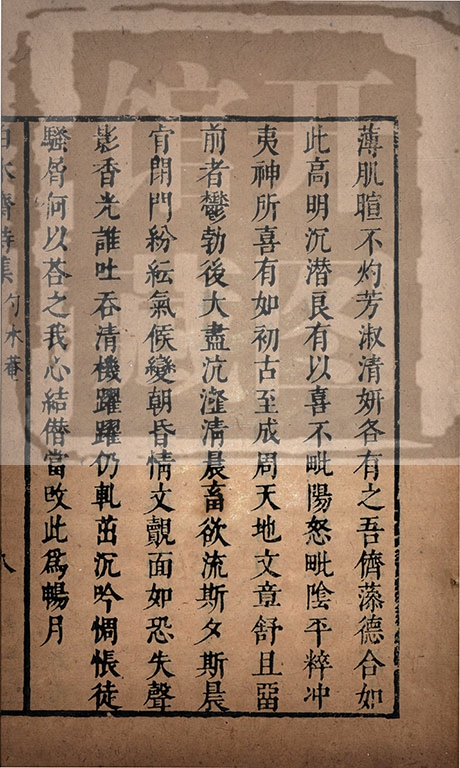 薄肌暄不灼芳淑清妍各有之吾儕藻德合如
此高明沉潜良有以喜不毗陽怒毗陰平粹冲
夷神所喜有如初古至成周天地文章舒且畱
前者鬱勃後大盡沆瀣清晨畜欲流斯夕斯晨
官閉門紛紜氣候變朝昏情文覿面如恐失聲
影香光誰吐吞清機躍躍仍軋茁沉吟惆悵徒
騷屑何以荅之我心結僣當攺此爲暢月
白水齋詩集 勺水菴 八
开图
馆藏